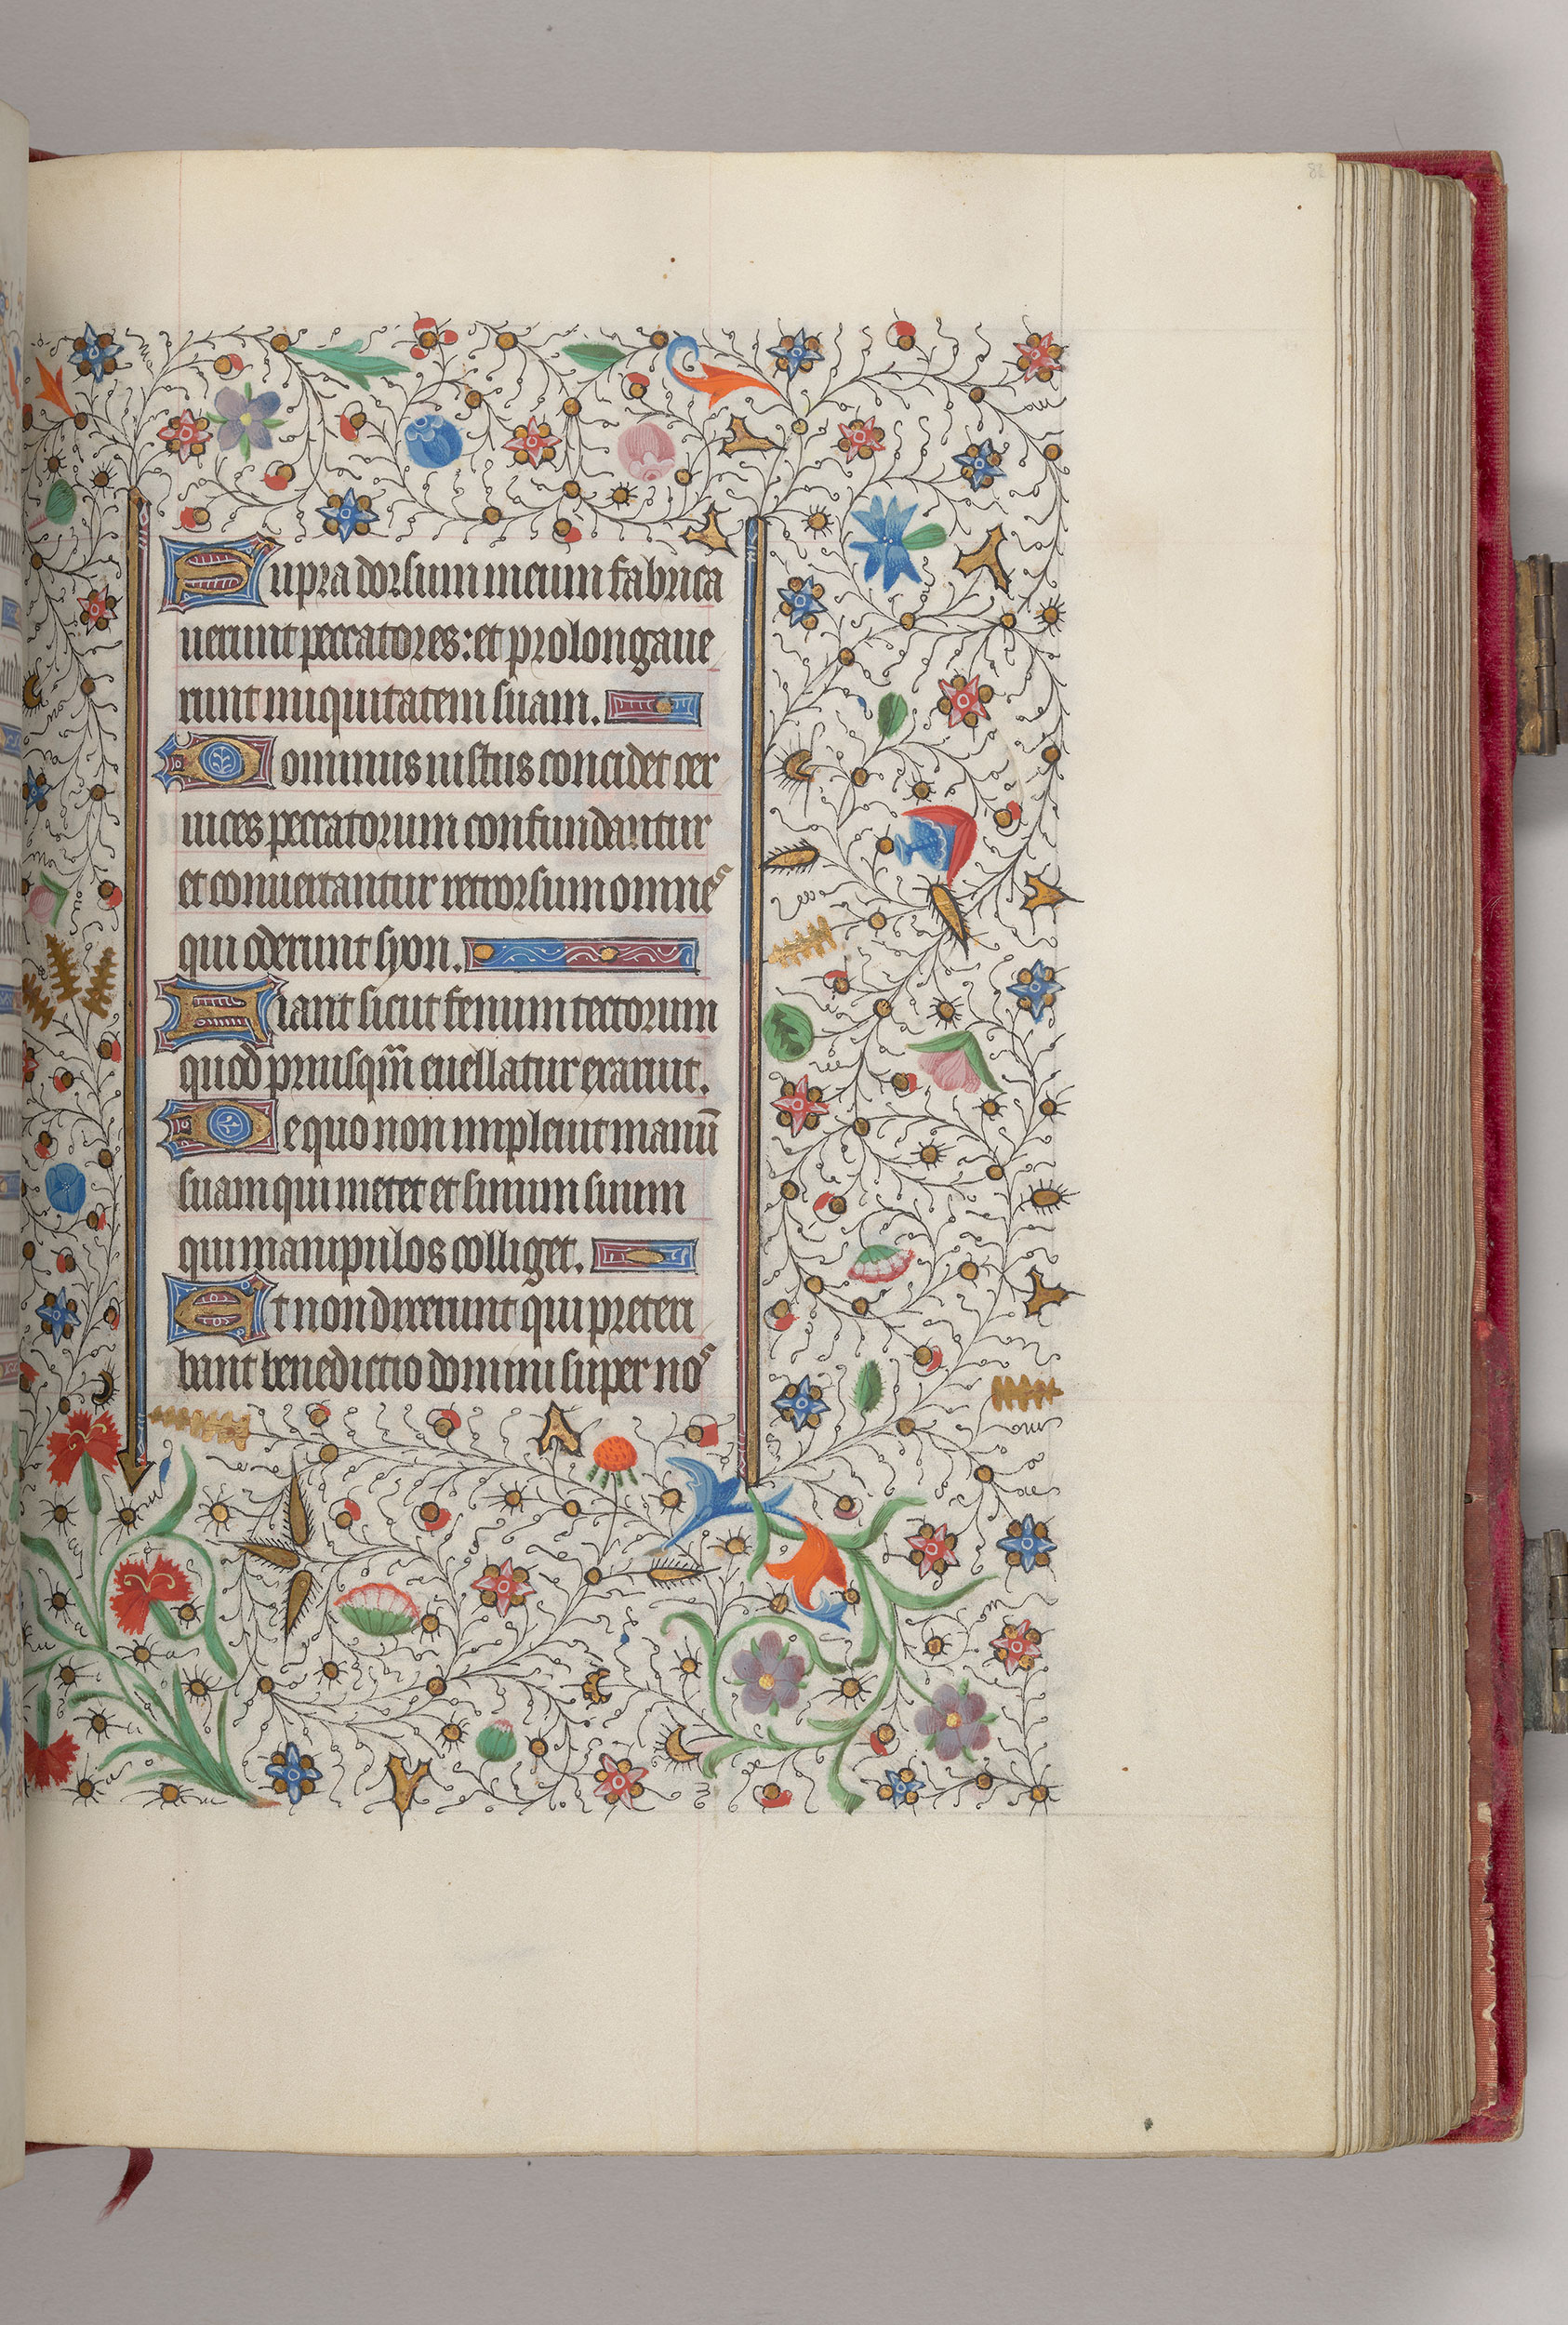 82
Supra dorsum meum fabrica
uerunt peccatores: et prolongaue
runt iniquitatem suam.
Dominus iustus concidet cer
uices peccatorum confundantur
et conuertantur retrorsum omnes
qui oderunt syon.
Fiant sicut fenum tectorum
quod priusqm̄ euellatur exaruit.
De quo non impleuit manū
suam qui metet et sinum suum
qui manipulos colliget.
Et non dixerunt qui preteri
bant benedictio domini super nos